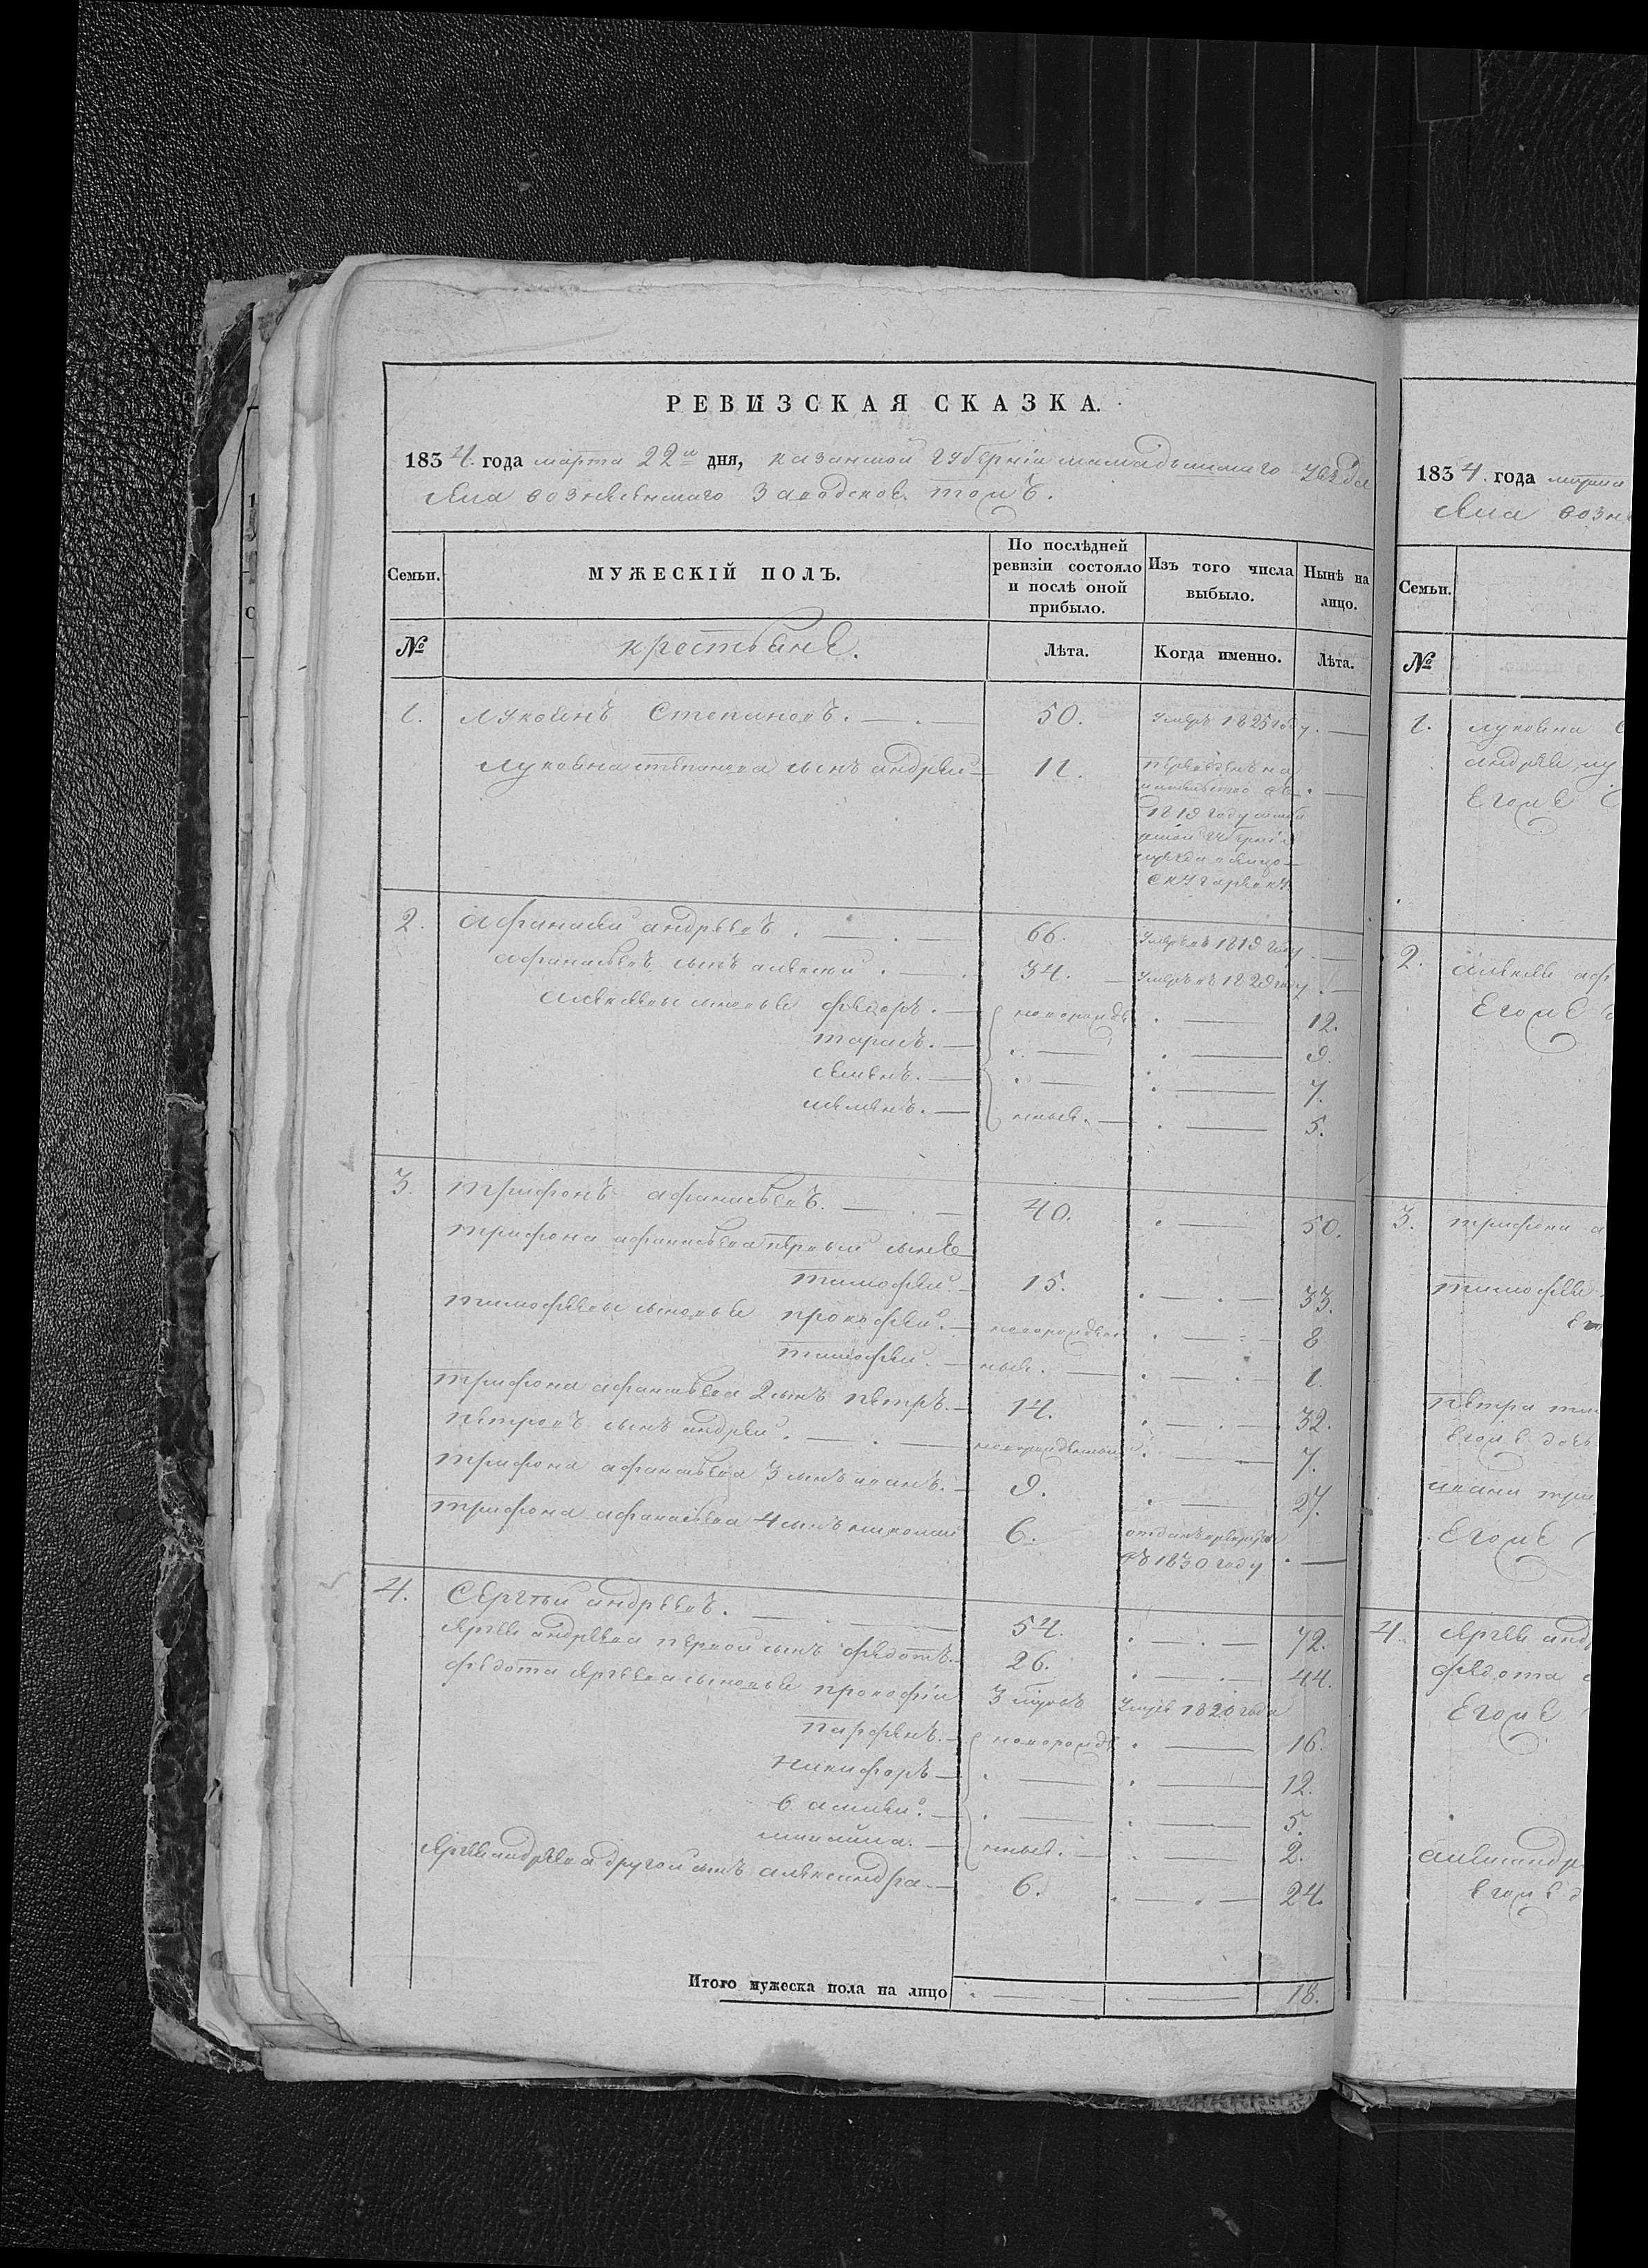 РЕВИЗСКАЯ СКАЗКА.
1834. года марта 22го дня, казанской губернїи мамадышскаго уѣзда
села вознесенскаго заводской томъ.
Семьи. МУЖЕСКІЙ ПОЛЪ. По послѣдней ревизіи состояло и послѣ оной прибыло. Изъ того числа выбыло. Нынѣ на лицо.
№ крестьяне. Лѣта. Когда именно. Лѣта.
1. Лукоянъ Степановъ. 50. умеръ 1825 году.
Лукояна степанова сынъ андрей 11.
1819 году
2. Афанасей андреевъ. 66. умеръ въ 1819 году
афанасьевъ сынъ алексей. 34. умеръ въ 1829 году
алексеевы сыновья федоръ. новорожде 12.
тарасъ. 9.
семенъ. 7.
нные. 5.
3. трифонъ афанасьевъ. 40. 50.
трифона афанасьева первый сынъ
тимофей. 15. 33.
тимофеевы сыновья прокофей. новорожден 8
тимофей. ные. 1.
трифона афанасьева 2 сынъ петръ. 14. 32.
петровъ сынъ андрей. новорожденный 7.
трифона афанасьева 3 сынъ иванъ. 9. 27.
трифона афанасьева 4 сынъ николай 6. отданъ в рекруты
въ 1830 году
4. Сергѣй андреевъ. 54. 72.
сергея андреева первой сынъ федотъ. 26. 44.
федота сергеева сыновья прокофій 3 умре 1820 года
парфенъ. новорожде 16.
никифоръ 12.
василей. 5.
михайла. нные. 2.
сергея андреева другой сынъ александра 6. 24.
Итого мужеска пола на лицо 18.
1834. года марта
села возн
Семьи.
№
1. лукояна с
андрея лу
Его же
2. алексея аф
Его же
3. трифона а
тимофея
петра
его же дочь
ивана три
Его же
4. сергея анд
федота
Его же
александр
его же д